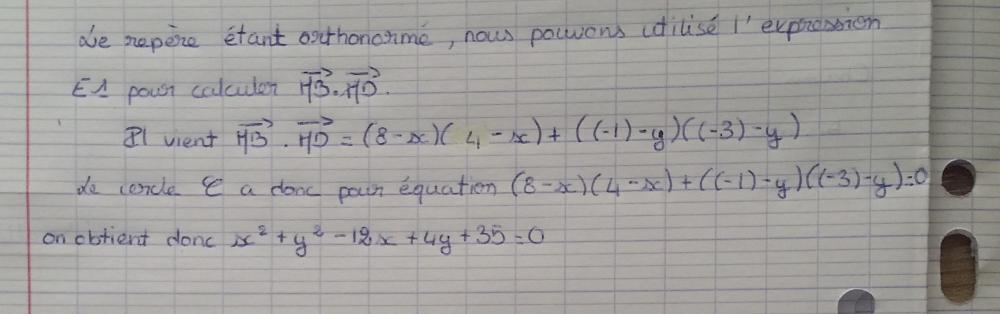 Le repère étant orthonormé, nous pouvons utilisé l'expression
E1 pour calculer \overrightarrow{HB}.\overrightarrow{HD}.
Il vient \overrightarrow{HB}.\overrightarrow{HD} = (8-x)(4-x)+((-1)-y)((-3)-y)
Le cercle C a donc pour équation (8-x)(4-x)+((-1)-y)((-3)-y)=0
on obtient donc x²+y²-12x+4y+35=0